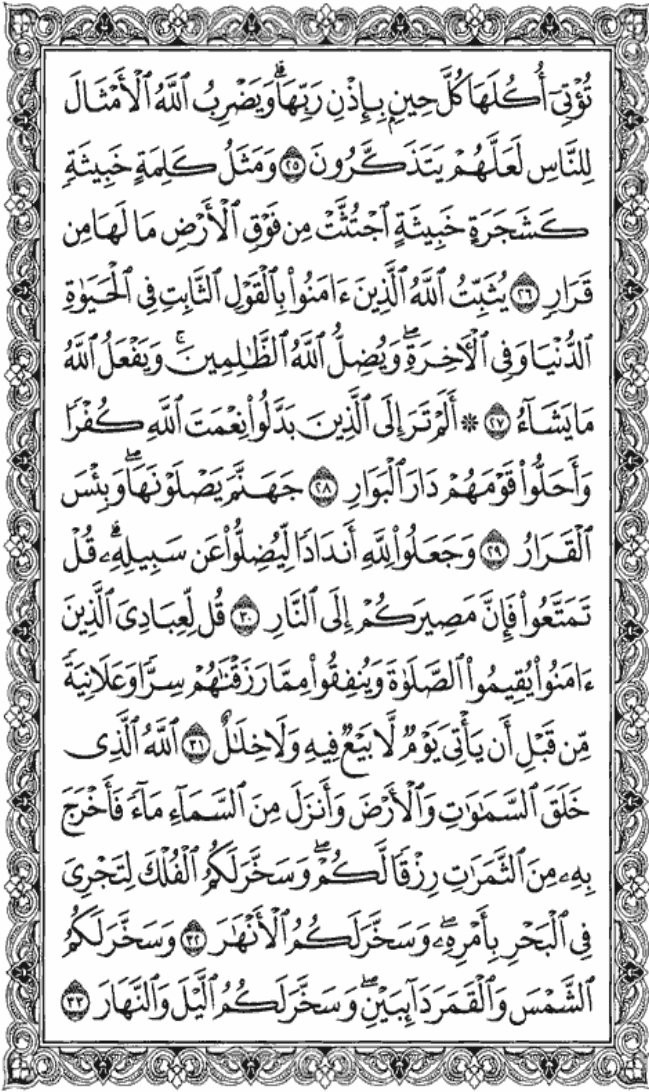 تُؤْتِىٓ أُكُلَهَا كُلَّ حِينٍۭ بِإِذْنِ رَبِّهَاۗ وَيَضْرِبُ ٱللَّهُ ٱلْأَمْثَالَ
لِلنَّاسِ لَعَلَّهُمْ يَتَذَكَّرُونَ ٢٥ وَمَثَلُ كَلِمَةٍ خَبِيثَةٖ
كَشَجَرَةٍ خَبِيثَةٍ ٱجْتُثَّتْ مِن فَوْقِ ٱلْأَرْضِ مَا لَهَا مِن
قَرَارٖ ٢٦ يُثَبِّتُ ٱللَّهُ ٱلَّذِينَ ءَامَنُوا۟ بِٱلْقَوْلِ ٱلثَّابِتِ فِى ٱلْحَيَوٰةِ
ٱلدُّنْيَا وَفِى ٱلْءَاخِرَةِۖ وَيُضِلُّ ٱللَّهُ ٱلظَّٰلِمِينَۚ وَيَفْعَلُ ٱللَّهُ
مَا يَشَآءُ ٢٧ ۞ أَلَمْ تَرَ إِلَى ٱلَّذِينَ بَدَّلُوا۟ نِعْمَتَ ٱللَّهِ كُفْرٗا
وَأَحَلُّوا۟ قَوْمَهُمْ دَارَ ٱلْبَوَارِ ٢٨ جَهَنَّمَ يَصْلَوْنَهَاۖ وَبِئْسَ
ٱلْقَرَارُ ٢٩ وَجَعَلُوا۟ لِلَّهِ أَندَادٗا لِّيُضِلُّوا۟ عَن سَبِيلِهِۦۗ قُلْ
تَمَتَّعُوا۟ فَإِنَّ مَصِيرَكُمْ إِلَى ٱلنَّارِ ٣٠ قُل لِّعِبَادِىَ ٱلَّذِينَ
ءَامَنُوا۟ يُقِيمُوا۟ ٱلصَّلَوٰةَ وَيُنفِقُوا۟ مِمَّا رَزَقْنَٰهُمْ سِرّٗا وَعَلَانِيَةٗ
مِّن قَبْلِ أَن يَأْتِىَ يَوْمٞ لَّا بَيْعٞ فِيهِ وَلَا خِلَٰلٌ ٣١ ٱللَّهُ ٱلَّذِى
خَلَقَ ٱلسَّمَٰوَٰتِ وَٱلْأَرْضَ وَأَنزَلَ مِنَ ٱلسَّمَآءِ مَآءٗ فَأَخْرَجَ
بِهِۦ مِنَ ٱلثَّمَرَٰتِ رِزْقٗا لَّكُمْۖ وَسَخَّرَ لَكُمُ ٱلْفُلْكَ لِتَجْرِىَ
فِى ٱلْبَحْرِ بِأَمْرِهِۦۖ وَسَخَّرَ لَكُمُ ٱلْأَنْهَٰرَ ٣٢ وَسَخَّرَ لَكُمُ
ٱلشَّمْسَ وَٱلْقَمَرَ دَآئِبَيْنِۖ وَسَخَّرَ لَكُمُ ٱلَّيْلَ وَٱلنَّهَارَ ٣٣